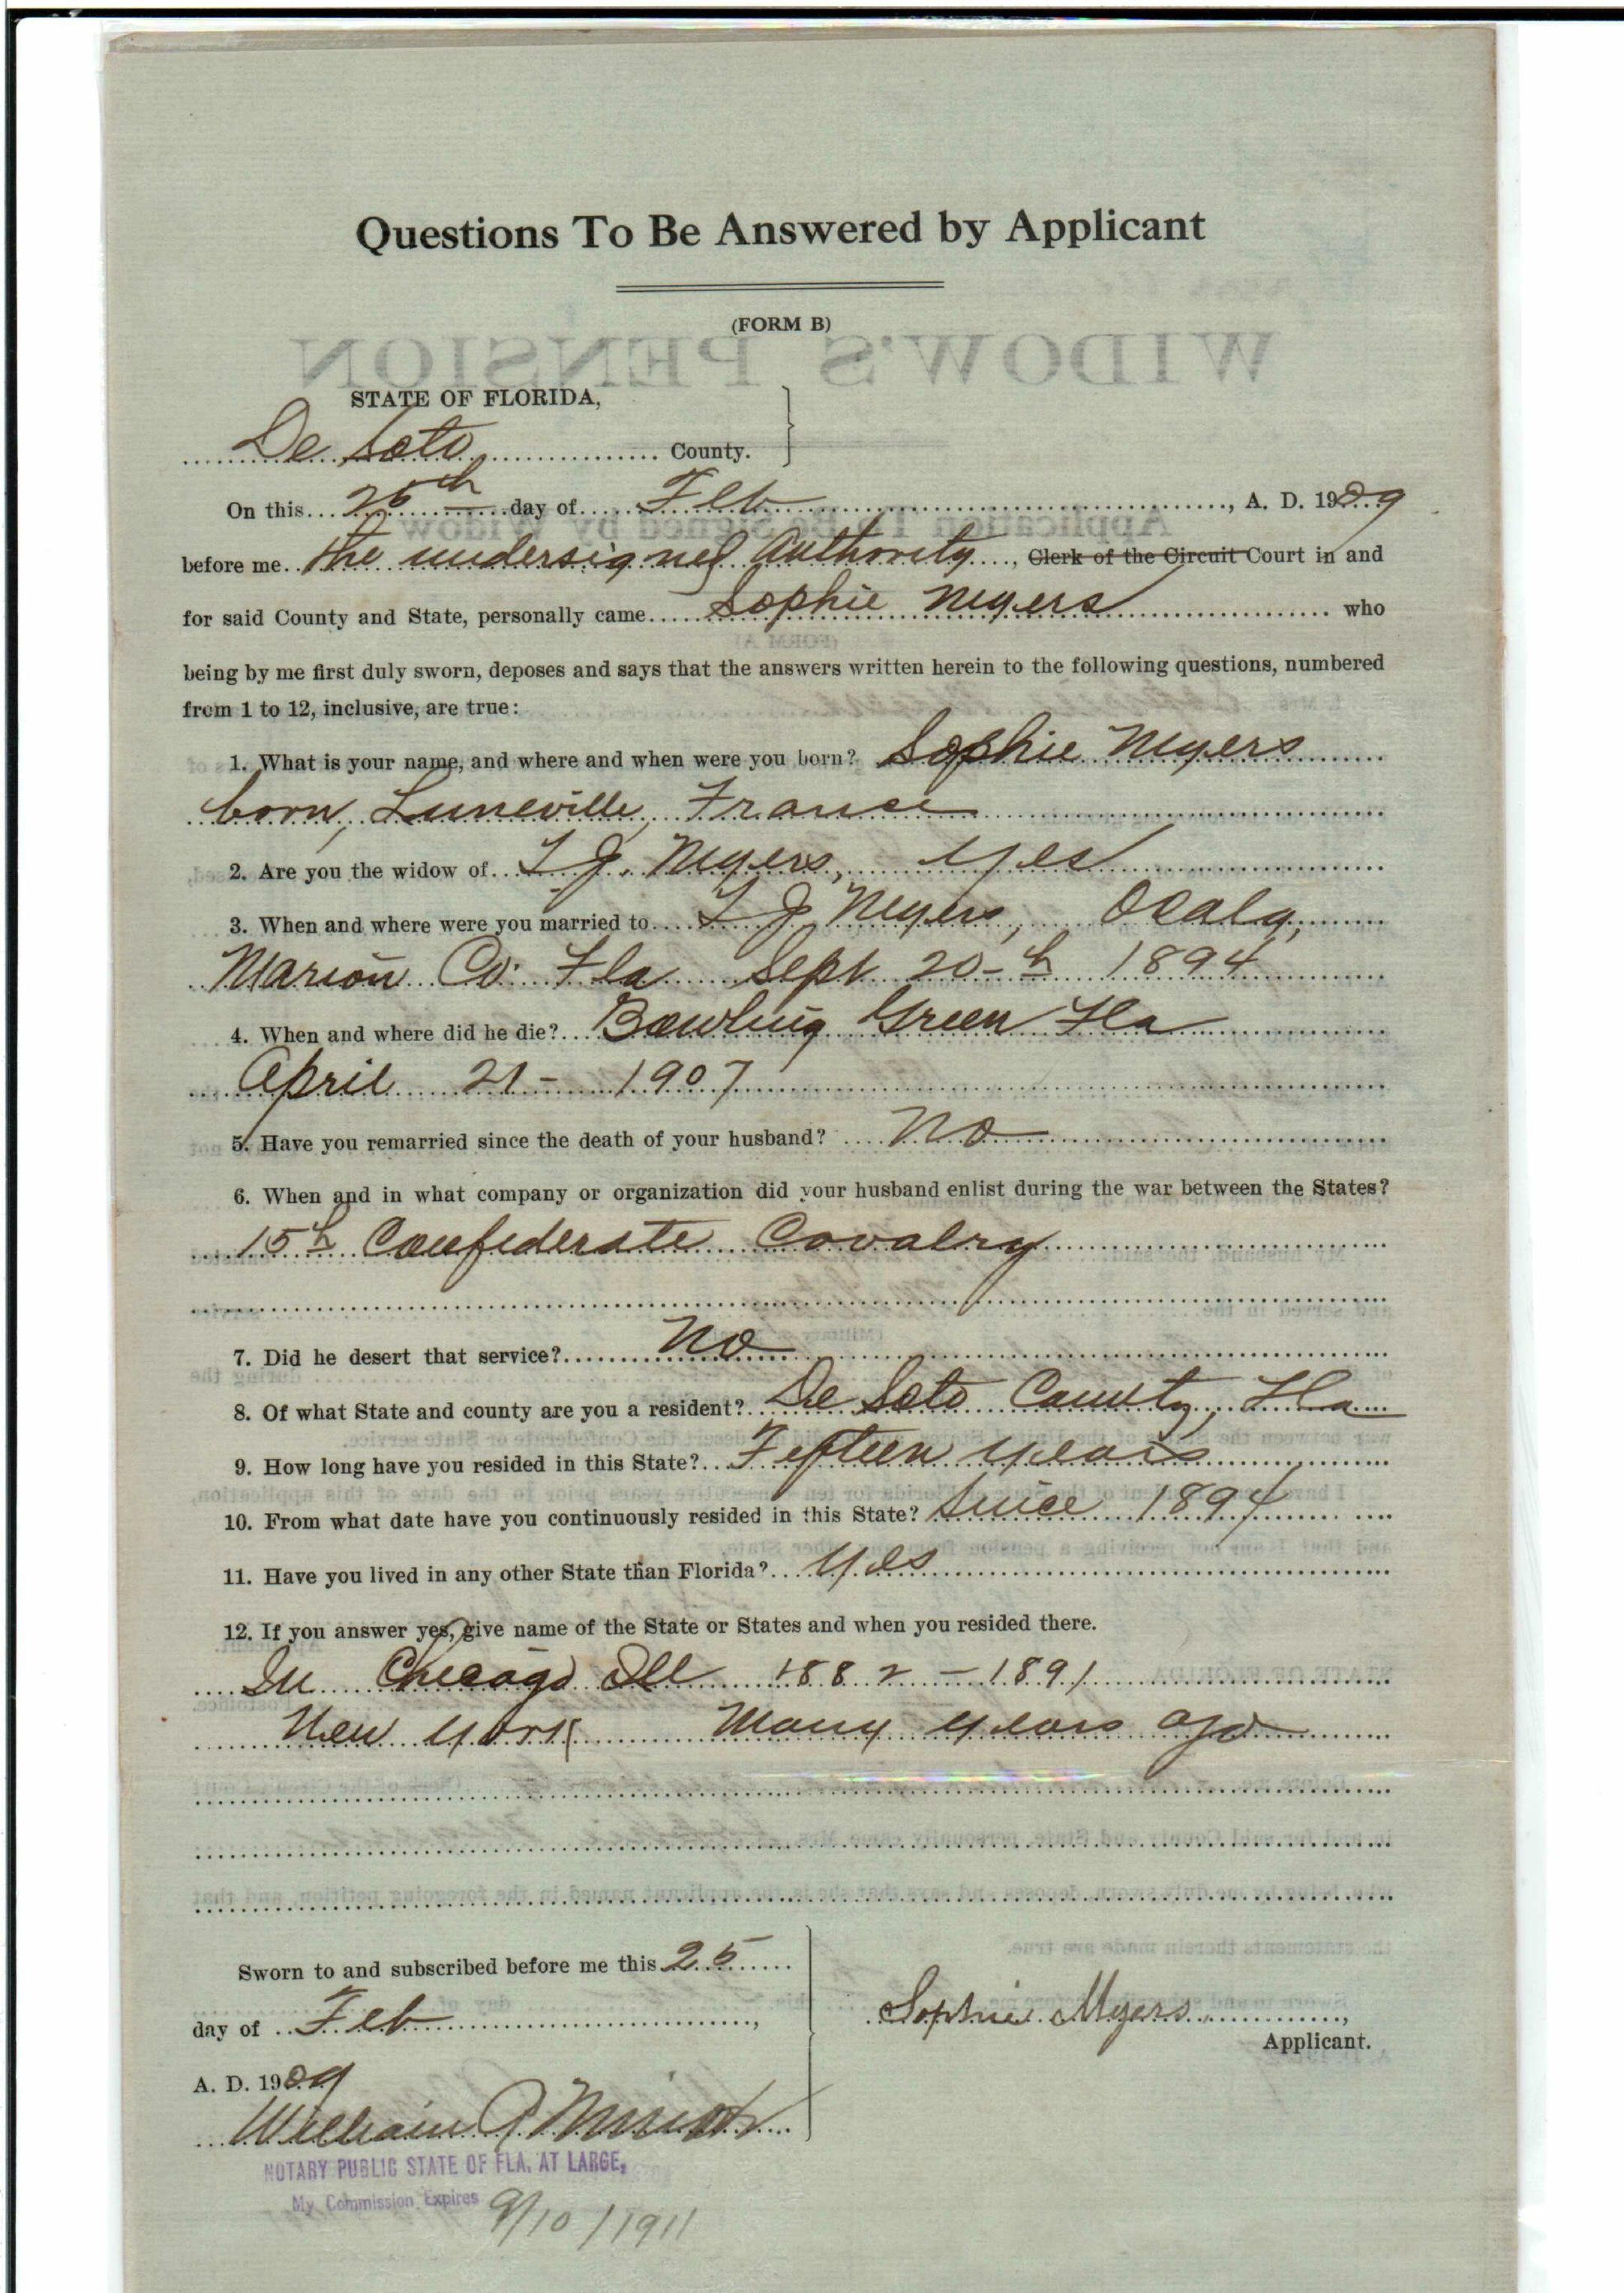 Questions To Be Answered by Applicant
(FORM B)
STATE OF FLORIDA,
De Soto County.
On this 25th day of Feb, A. D. 1909
before me the undersigned Authority, Clerk of the Circuit Court in and
for said County and State, personally came Sophie Myers who
being by me first duly sworn, deposes and says that the answers written herein to the following questions, numbered
from 1 to 12, inclusive, are true:
1. What is your name, and where and when were you born? Sophie Myers
born, Luneville, France
2. Are you the widow of L J. Myers, yes
3. When and where were you married to L J Myers, Ocala,
Marion Co. Fla Sept 20-th 1894
4. When and where did he die? Bowling Green Fla
April 21 - 1907
5. Have you remarried since the death of your husband? No
6. When and in what company or organization did your husband enlist during the war between the States?
15th Confederate Covalry
7. Did he desert that service? No
8. Of what State and county are you a resident? De Soto County, Fla
9. How long have you resided in this State? Fifteen years
10. From what date have you continuously resided in this State? Since 1894
11. Have you lived in any other State than Florida? Yes
12. If you answer yes, give name of the State or States and when you resided there.
In Chicago Ill 1882 - 1891
New York Many years ago
Sworn to and subscribed before me this 25
day of Feb,
A. D. 1909
Sophie Myers,
Applicant.
William
NOTARY PUBLIC STATE OF FLA. AT LARGE,
My Commission Expires 9/10/1911